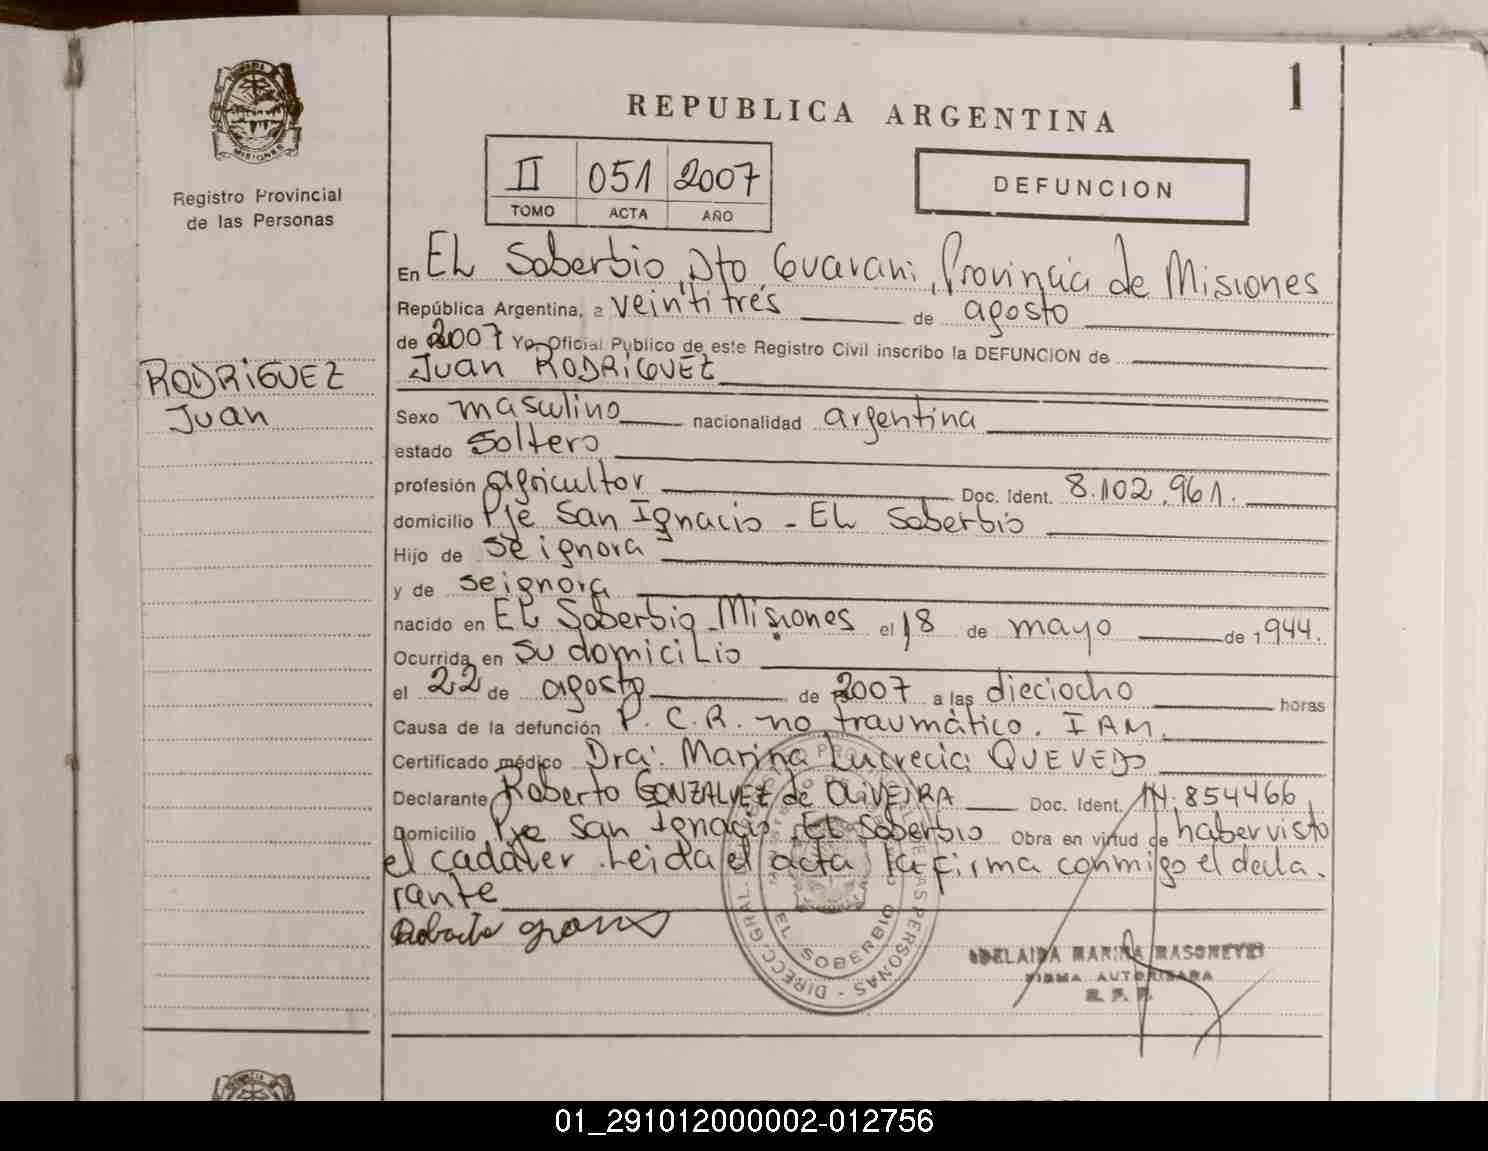 1
REPUBLICA ARGENTINA
MISIONES
Registro Provincial
de las Personas
II 051 2007
TOMO ACTA AÑO
DEFUNCION
En EL Soberbio, Dto Guarani, Provincia de Misiones
República Argentina, a veintitrés de agosto
de 2007 Yo Oficial Publico de este Registro Civil inscribo la DEFUNCION de
Juan RODRIGUEZ
RODRIGUEZ
Juan
Sexo masculino nacionalidad argentina
estado Soltero
profesión agricultor Doc. Ident. 8.102.961.
domicilio Pje San Ignacio - EL Soberbio
Hijo de se ignora
y de se ignora
nacido en EL Soberbio - Misiones el 18 de mayo de 1944.
Ocurrida en su domicilio
el 22 de agosto de 2007 a las dieciocho horas
Causa de la defunción P. C. R. no traumático. IAM.
Certificado médico Dra: Marina Lucrecia QUEVEDO
Declarante Roberto GONZALVEZ de OLIVEIRA Doc. Ident. 14.854466
Domicilio Pje San Ignacio EL Soberbio Obra en virtud de haber visto
el cadaver. Leida el acta la firma conmigo el decla.
rante
EL SOBERBIO
ADELAIDA MARINA
FIRMA AUTORIZADA
R. P. P.
01_291012000002-012756